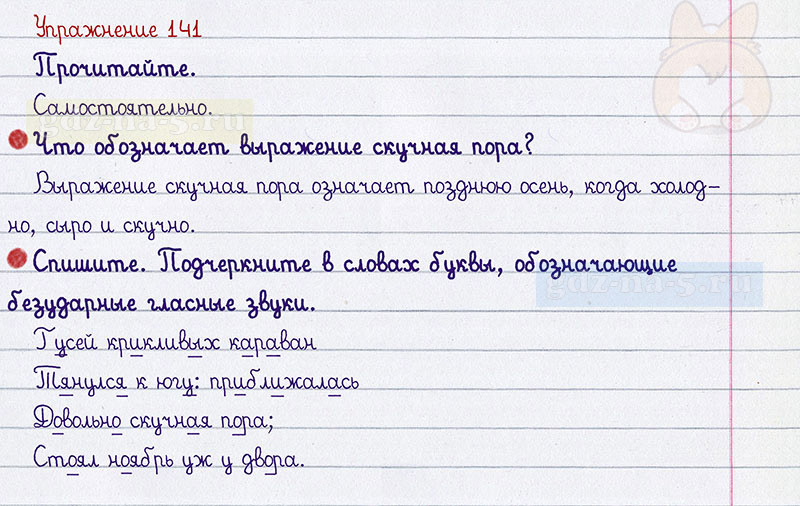 Упражнение 141
Прочитайте.
Самостоятельно.
gdz-na-5.ru
Что обозначает выражение скучная пора?
Выражение скучная пора означает позднюю осень, когда холод-
но, сыро и скучно.
Спишите. Подчеркните в словах буквы, обозначающие
gdz-na-5.ru
безударные гласные звуки.
Гусей крикливых караван
Тянулся к югу: приближалась
Довольно скучная пора;
Стоял ноябрь уж у двора.